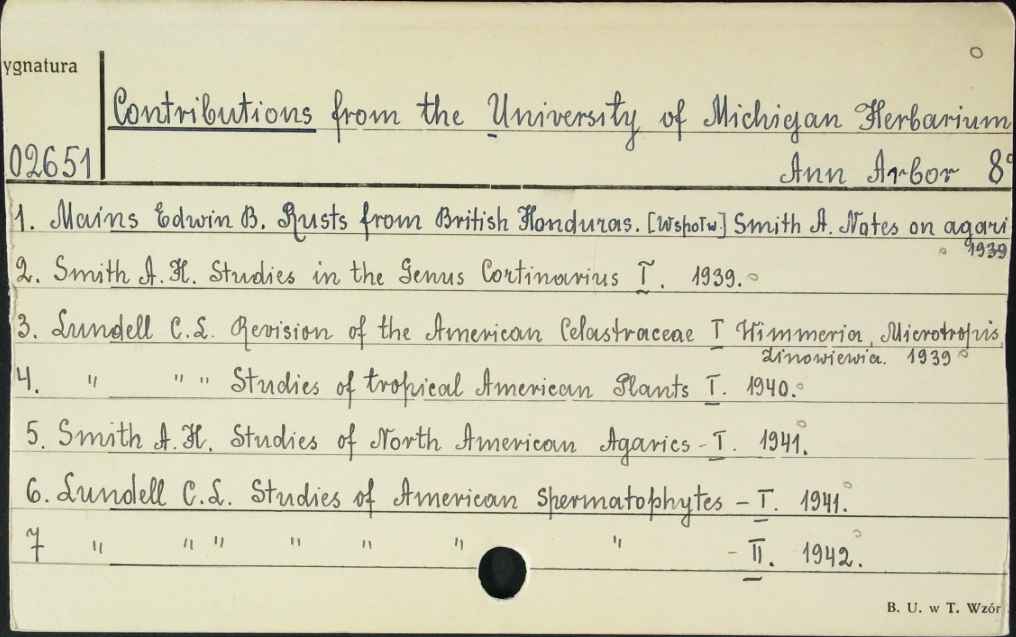 ygnatura
Contributions from the University of Michigan Herbarium
02651
Ann Arbor 8°
1. Mains Edwin B. Rusts from British Honduras. [Wspołw.] Smith A. Notes on agari
1939
2. Smith A. H. Studies in the Genus Cortinarius I. 1939.
3. Lundell C.L. Revision of the American Celastraceae I Wimmeria, Microtropis,
Zinowiewia. 1939
4. " " " Studies of tropical American Plants I. 1940.
5. Smith A.H. Studies of North American Agarics - I. 1941.
6. Lundell C.L. Studies of American Spermatophytes – I. 1941.
7 " " " " " " " - II. 1942.
B. U. w T. Wzór